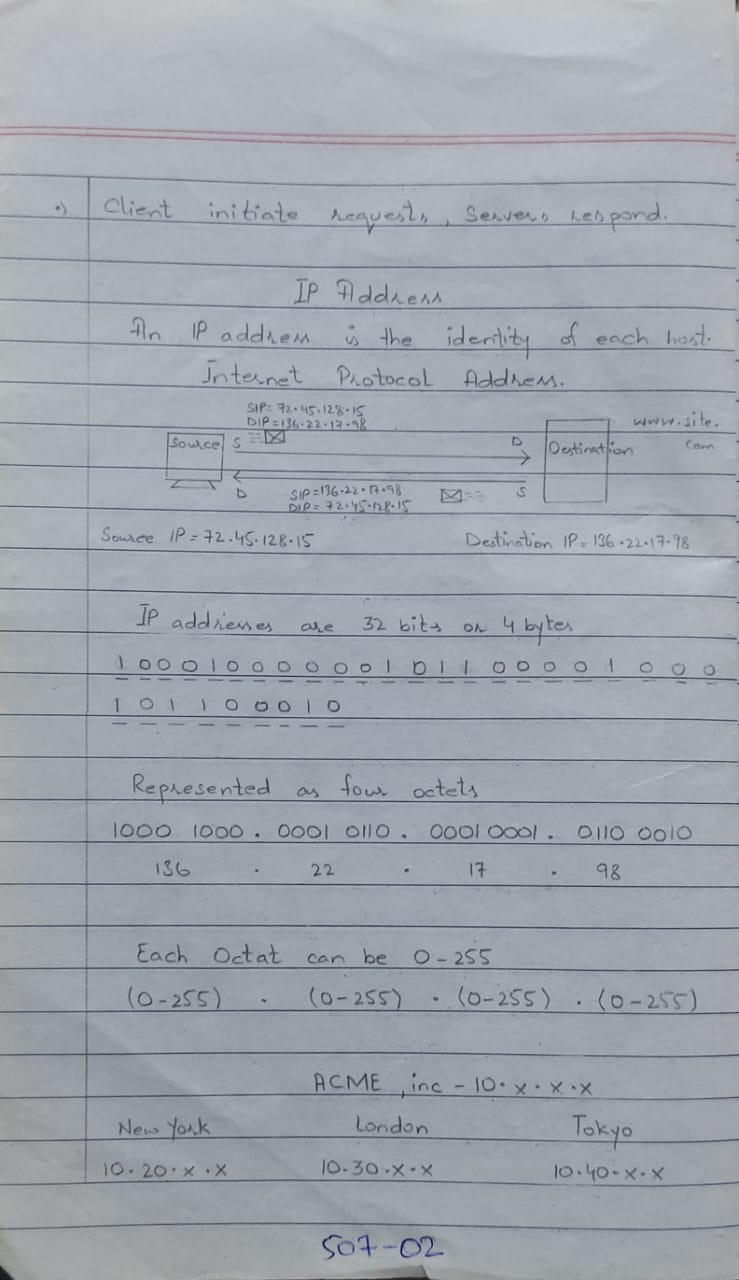 •) Client initiate requests, Servers respond.
IP Address
An IP address is the identity of each host.
Internet Protocol Address.
SIP = 72.45.128.15
DIP = 136.22.17.98
www.site.com
Source S D Destination
D SIP = 136.22.17.98 S
DIP = 72.45.128.15
Source IP = 72.45.128.15 Destination IP = 136.22.17.98
IP addresses are 32 bits or 4 bytes
1 0 0 0 1 0 0 0 0 0 0 1 0 1 1 0 0 0 0 1 0 0 0
1 0 1 1 0 0 0 1 0
Represented as four octets
1000 1000 . 0001 0110 . 0001 0001 . 0110 0010
136 . 22 . 17 . 98
Each Octat can be 0-255
(0-255) . (0-255) . (0-255) . (0-255)
ACME, inc - 10.x.x.x
New York London Tokyo
10.20.x.x 10.30.x.x 10.40.x.x
507-02